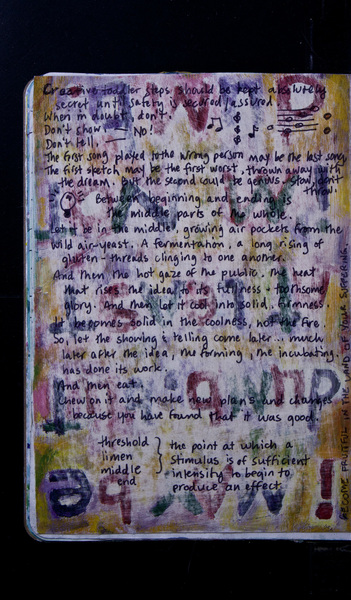 Creative toddler steps should be kept absolutely
secret until safety is secured/assured.
When in doubt, don't.
Don't show. No!
Don't tell.
The first song played to the wrong person may be the last song.
The first sketch may be the first worst, thrown away with
the dream. But the second could be genius. Slow, don't
throw.
Between beginning and ending is
the middle parts of the whole.
Let it be in the middle, growing air pockets from the
wild air-yeast. A fermentation, a long rising of
gluten-threads clinging to one another.
And then the hot gaze of the public. The heat
that rises the idea to its fullness + toothsome
glory. And then let it cool into solid firmness.
It becomes solid in the coolness, not the fire.
So, let the showing & telling come later... much
later after the idea, the forming, the incubating
has done its work.
And then eat.
Chew on it and make new plans and changes
because you have found that it was good.
threshold
limen
middle
end
} the point at which a
stimulus is of sufficient
intensity to begin to
produce an effect.
BECOME FRUITFUL IN THE LAND OF YOUR SUFFERING.